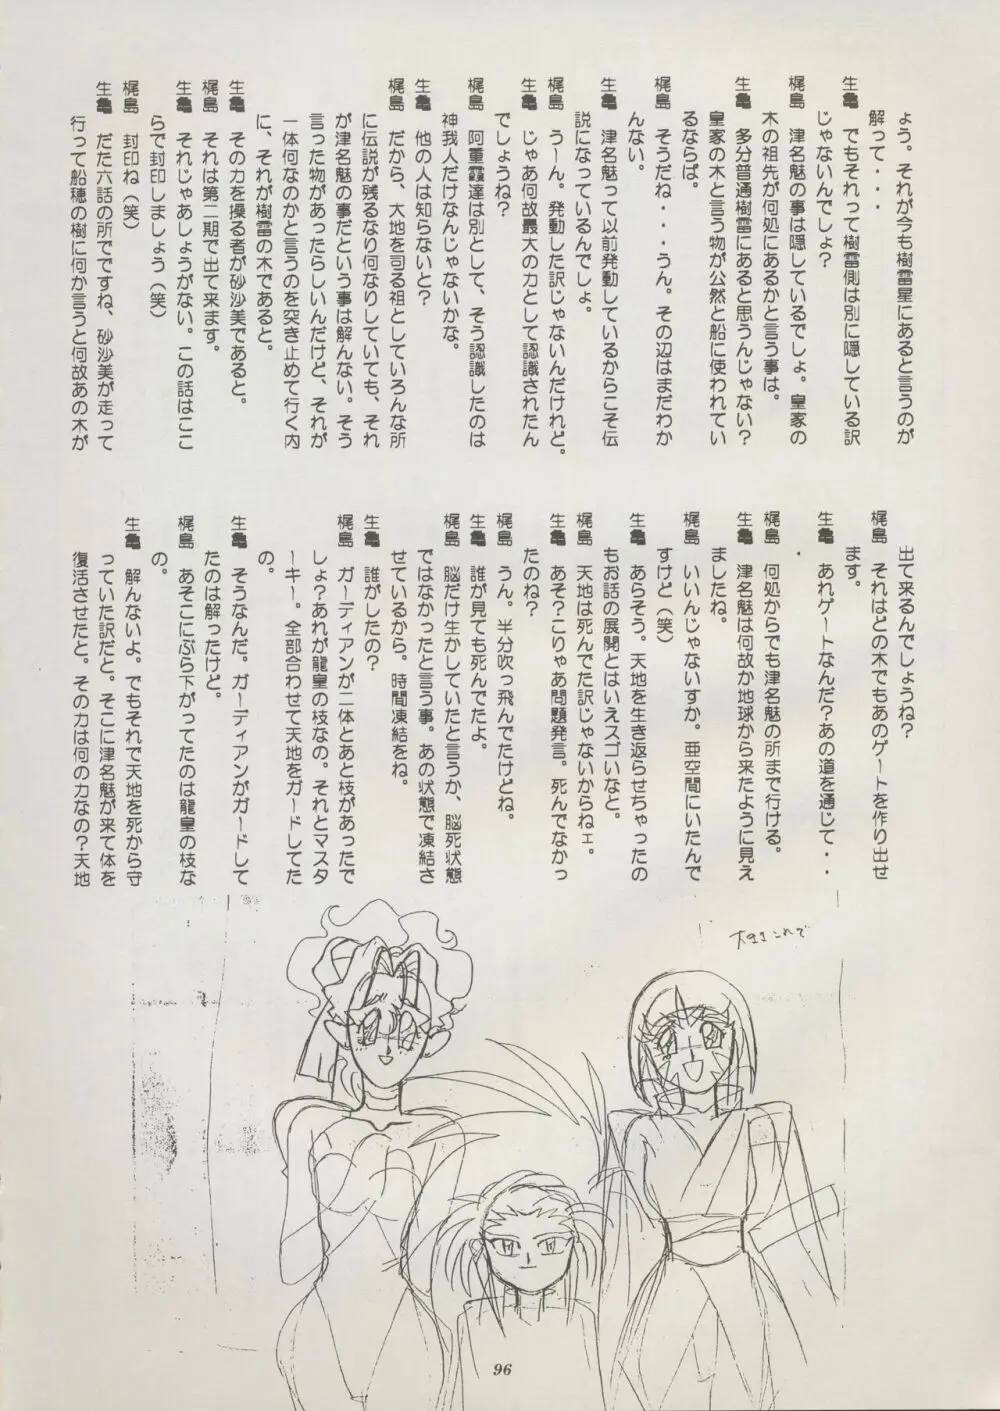 ょう。それが今も樹雷星にあると言うのが
解って・・・・
生亀　でもそれって樹雷側は別に隠している訳
じゃないんでしょ？
梶島　津名魅の事は隠しているでしょ。皇家の
木の祖先が何処にあるかと言う事は。
生亀　多分普通樹雷にあると思うんじゃない？
皇家の木と言う物が公然と船に使われてい
るならば。
梶島　そうだね・・・うん。その辺はまだわか
んない。
生亀　津名魅って以前発動しているからこそ伝
説になっているんでしょ。
梶島　うーん。発動した訳じゃないんだけれど。
生亀　じゃあ何故最大の力として認識されたん
でしょうね？
梶島　阿重霞達は別として、そう認識したのは
神我人だけなんじゃないかな。
生亀　他の人は知らないと？
梶島　だから、大地を司る祖としていろんな所
に伝説が残るなり何なりしていても、それ
が津名魅の事だという事は解んない。そう
言った物があったらしいんだけど、それが
一体何なのかと言うのを突き止めて行く内
に、それが樹雷の木であると。
生亀　その力を操る者が砂沙美であると。
梶島　それは第二期で出て来ます。
生亀　それじゃあしょうがない。この話はここ
らで封印しましょう（笑）
梶島　封印ね（笑）
生亀　ただ六話の所でですね、砂沙美が走って
行って船穂の樹に何か言うと何故あの木が
出て来るんでしょうね？
梶島　それはどの木でもあのゲートを作り出せ
ます。
生亀　あれゲートなんだ？あの道を通じて・・
・
梶島　何処からでも津名魅の所まで行ける。
生亀　津名魅は何故か地球から来たように見え
ましたね。
梶島　いいんじゃないすか。亜空間にいたんで
すけど（笑）
生亀　あらそう。天地を生き返らせちゃったの
もお話の展開とはいえスゴいなと。
梶島　天地は死んでた訳じゃないからねェ。
生亀　あそ？こりゃあ問題発言。死んでなかっ
たのね？
梶島　うん。半分吹っ飛んでたけどね。
生亀　誰が見ても死んでたよ。
梶島　脳だけ生かしていたと言うか、脳死状態
ではなかったと言う事。あの状態で凍結さ
せているから。時間凍結をね。
生亀　誰がしたの？
梶島　ガーディアンが二体とあと枝があったで
しょ？あれが龍皇の枝なの。それとマスタ
ーキー。全部合わせて天地をガードしてた
の。
生亀　そうなんだ。ガーディアンがガードして
たのは解ったけど。
梶島　あそこにぶら下がってたのは龍皇の枝な
の。
生亀　解んないよ。でもそれで天地を死から守
っていた訳だと。そこに津名魅が来て体を
復活させたと。その力は何の力なの？天地
96